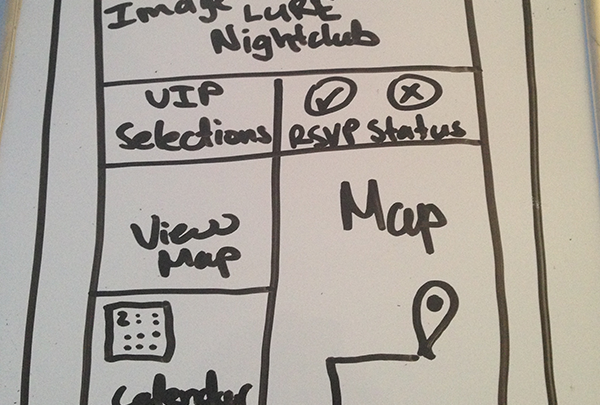 Image LURE
Nightclub
VIP
Selections
RSVP Status
View
Map
Map
2
Calendar